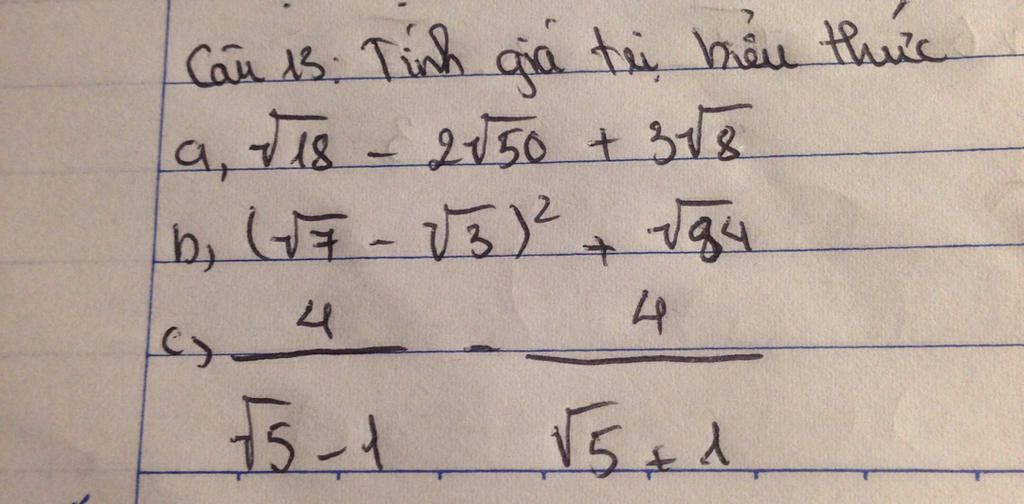 Câu 13: Tính giá trị biểu thức
a, √18 - 2√50 + 3√8
b, (√7 - √3)² + √84
c, 4/(√5 - 1) - 4/(√5 + 1)